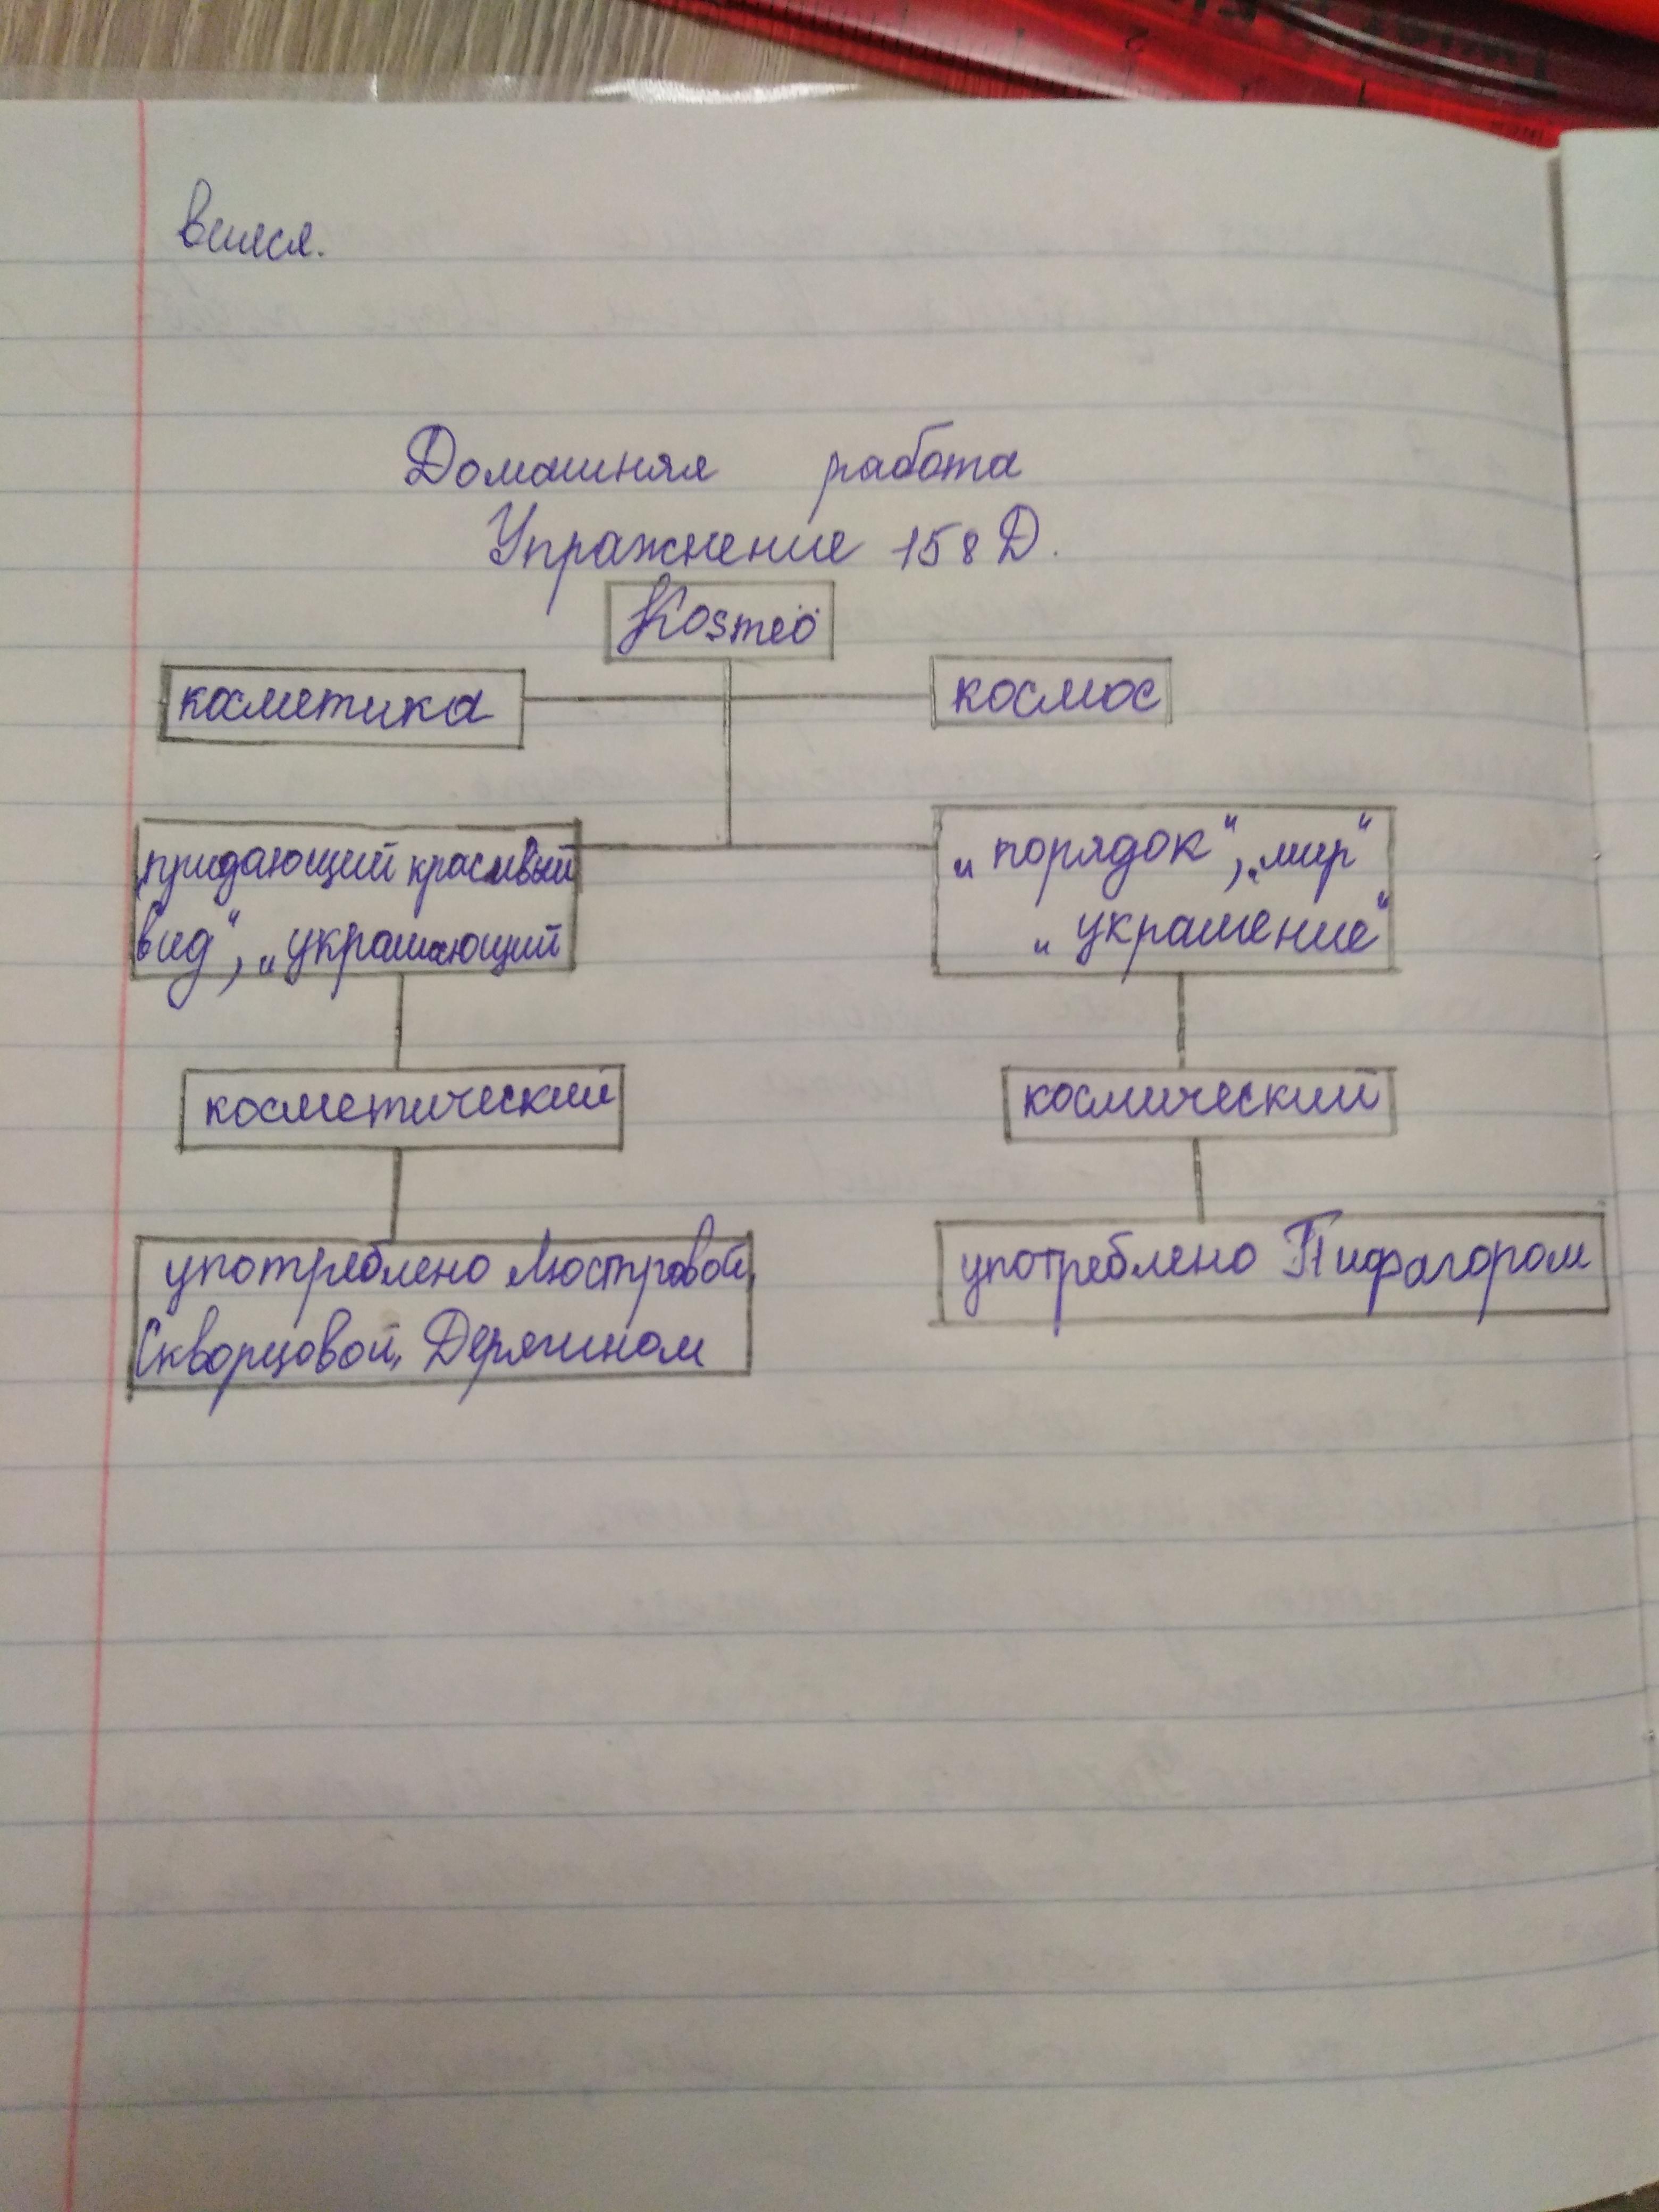 вшися.
Домашняя работа
Упражнение 158Д.
Kosmeö
косметика
космос
придающий красивый
вид", „украшающий
„порядок", „мир"
„украшение"
косметический
космический
употреблено Люстровой,
Скворцовой, Дерягином
употреблено Пифагором